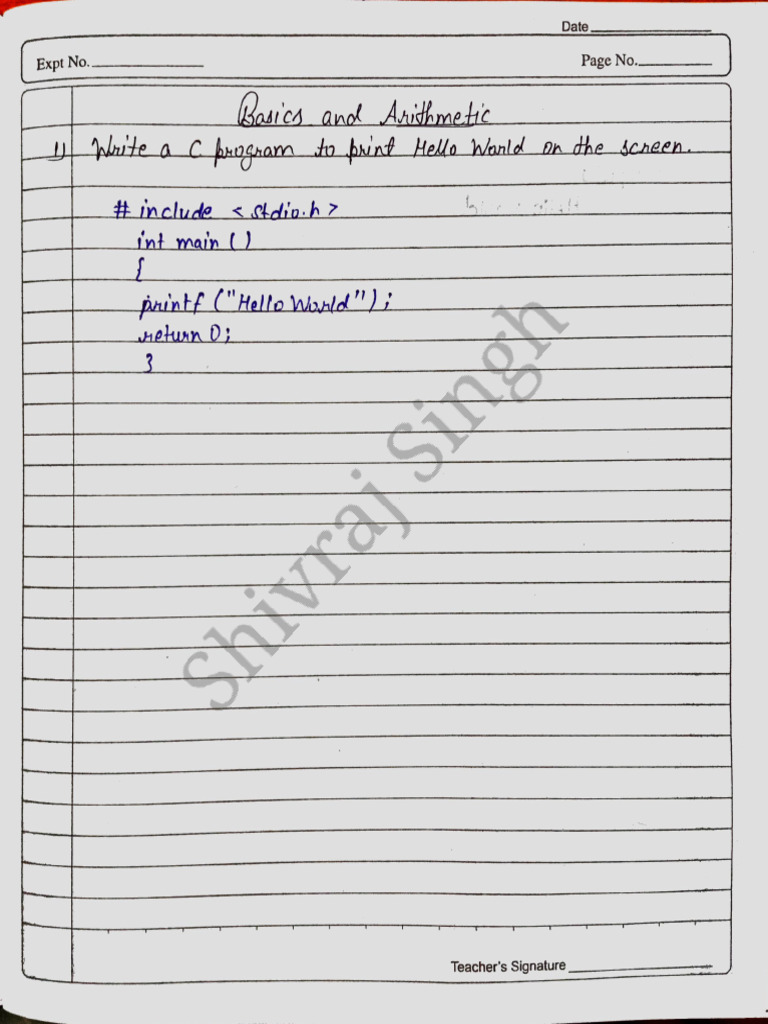 Date
Expt No.
Page No.
Basics and Arithmetic
1) Write a C program to print Hello World on the screen.
# include < stdio.h >
int main ()
{
printf ("Hello World");
return 0;
}
Shivraj Singh
Teacher's Signature